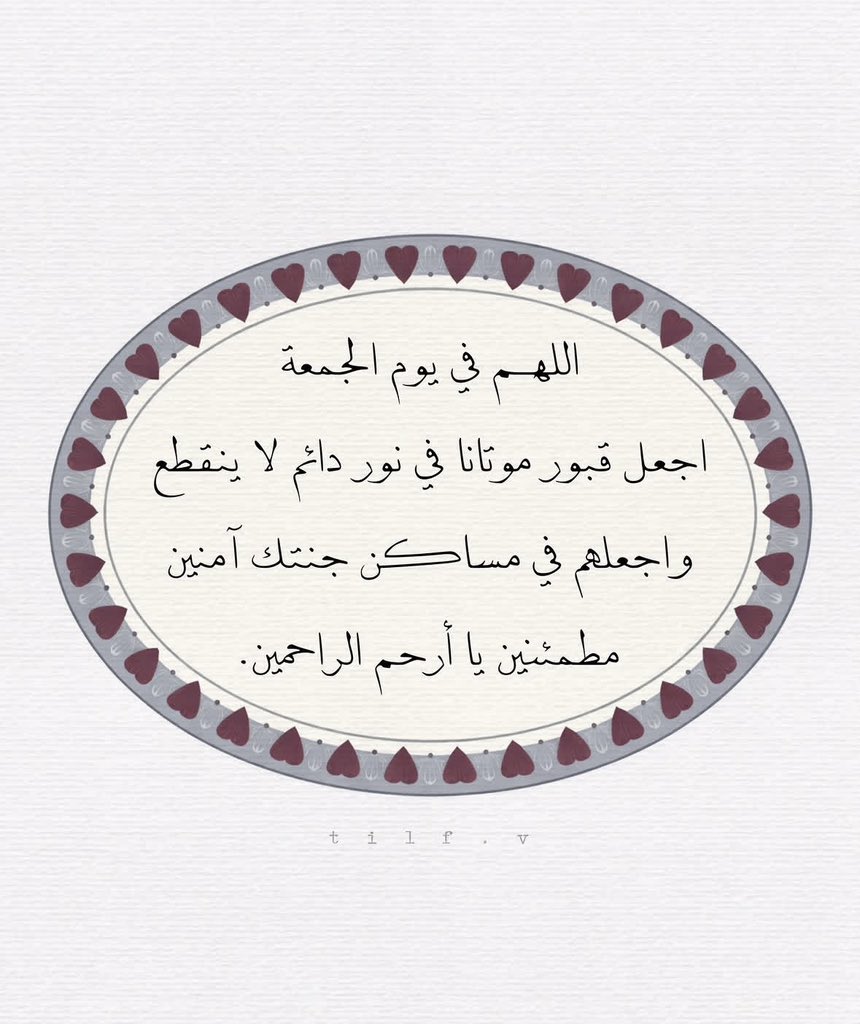 اللهم في يوم الجمعة
اجعل قبور موتانا في نور دائم لا ينقطع
واجعلهم في مساكن جنتك آمنين
مطمئنين يا أرحم الراحمين.
tilf.v